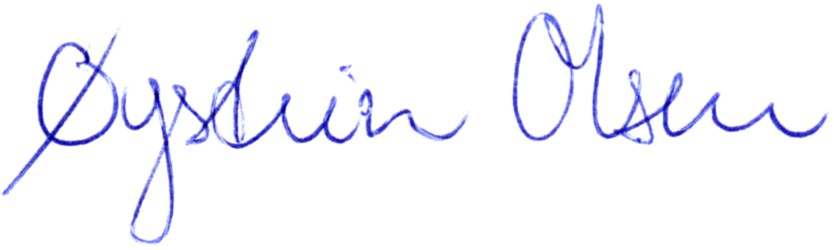 Øystein Olsen